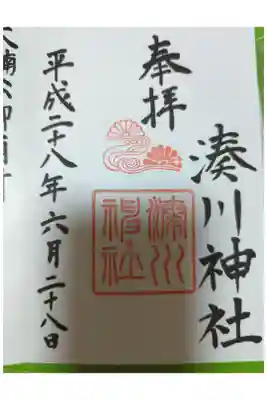 奉拝
湊川神社
湊川神社
平成二十八年六月二十八日